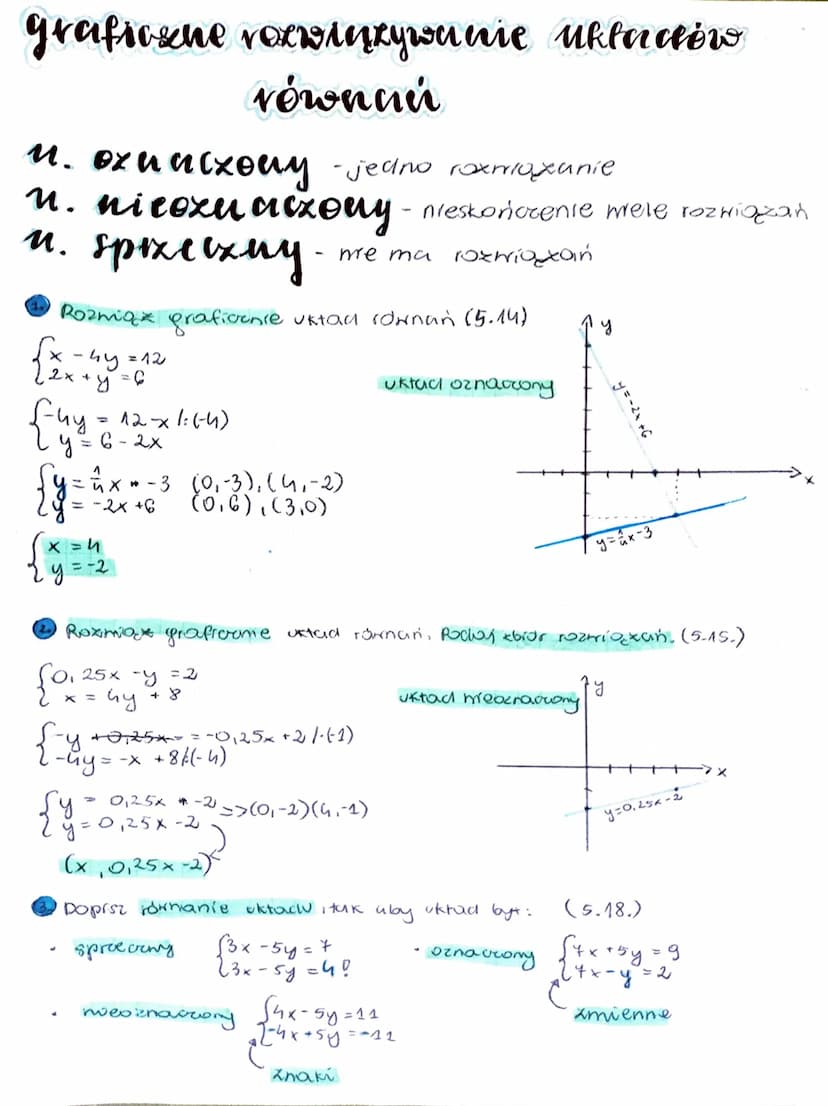 graficzne rozwiązywanie układów
równań
u. oznaczony - jedno rozwiązanie
u. nieoznaczony - nieskończenie wiele rozwiązań
u. sprzeczny - nie ma rozwiązań
1. Rozwiąż graficznie układ równań (5.14)
y
x - 4y = 12
2x + y = 6
układ oznaczony
y = -2x + 6
-4y = 12 - x /:(-4)
y = 6 - 2x
y = 1/4 x - 3 (0,-3), (4,-2)
y = -2x + 6 (0,6), (3,0)
x
y = 1/4 x - 3
x = 4
y = -2
2. Rozwiąż graficznie układ równań. Podaj zbiór rozwiązań. (5.15.)
0,25x - y = 2
x = 4y + 8
układ nieoznaczony
y
-y + 0,25x = -0,25x + 2 /·(-1)
-4y = -x + 8 /:(-4)
x
y = 0,25x - 2 => (0,-2) (4,-1)
y = 0,25x - 2
y = 0,25x - 2
(x, 0,25x - 2)
3. Dopisz równanie układu, tak aby układ był: (5.18.)
• sprzeczny
3x - 5y = 7
3x - 5y = 4!
• oznaczony
7x + 5y = 9
7x - y = 2
zmienne
• nieoznaczony
4x - 5y = 11
-4x + 5y = -11
znaki